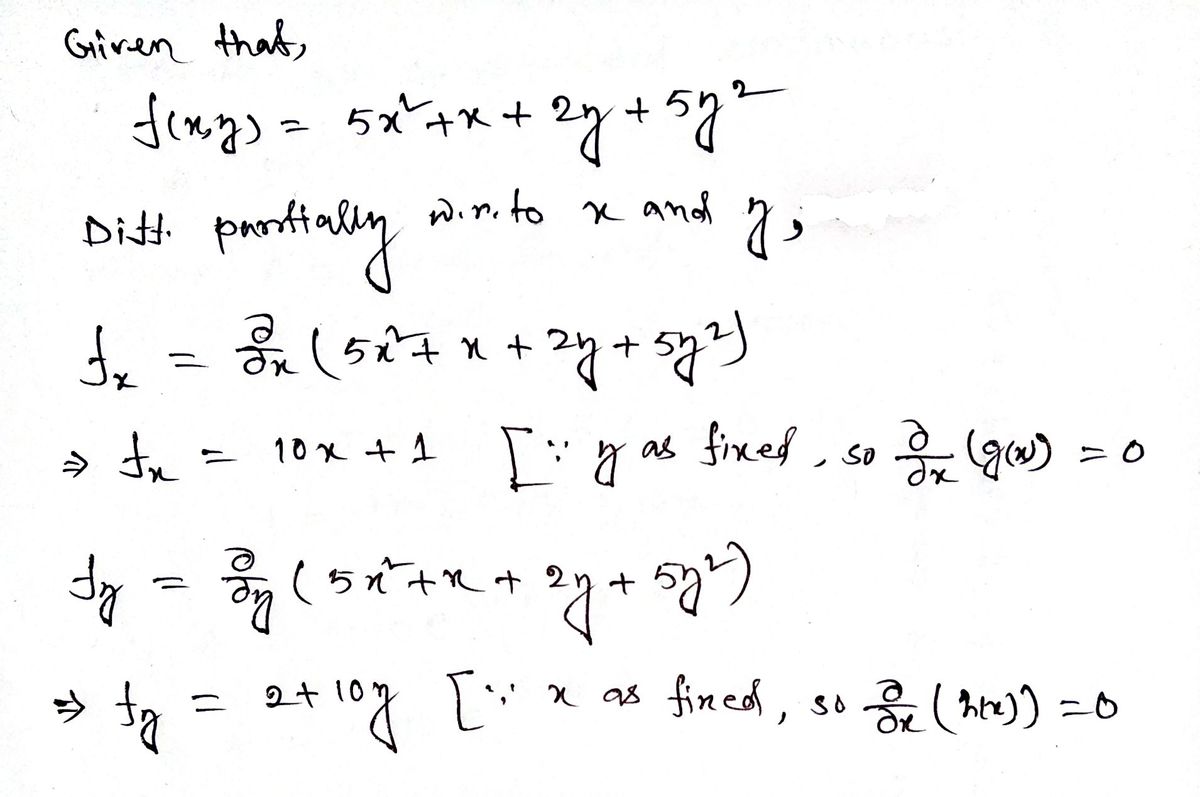 Given that,
f(x,y) = 5x² + x + 2y + 5y²
Diff. partially w.r.to x and y,
fₓ = ∂/∂x (5x² + x + 2y + 5y²)
⇒ fₓ = 10x + 1 [∵ y as fixed, so ∂/∂x (g(x)) = 0
f_y = ∂/∂y (5x² + x + 2y + 5y²)
⇒ f_y = 2 + 10y [∵ x as fixed, so ∂/∂x (h(x)) = 0